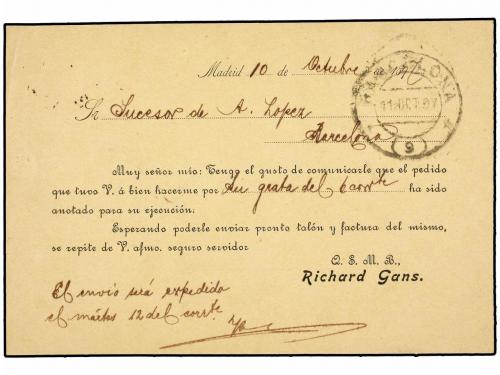 Madrid 10 de Octubre de 1897
BARCELONA
11 OCT 97
(9)
Sr Sucesor de A. Lopez
Barcelona
Muy señor mío: Tengo el gusto de comunicarle que el pedido
que tuvo V. á bien hacerme por su grata del 6 corrte ha sido
anotado para su ejecución:
Esperando poderle enviar pronto talón y factura del mismo,
se repite de V. afmo. seguro servidor
Q. S. M. B.,
Richard Gans.
El envio será expedido
el mártes 12 del corrte.